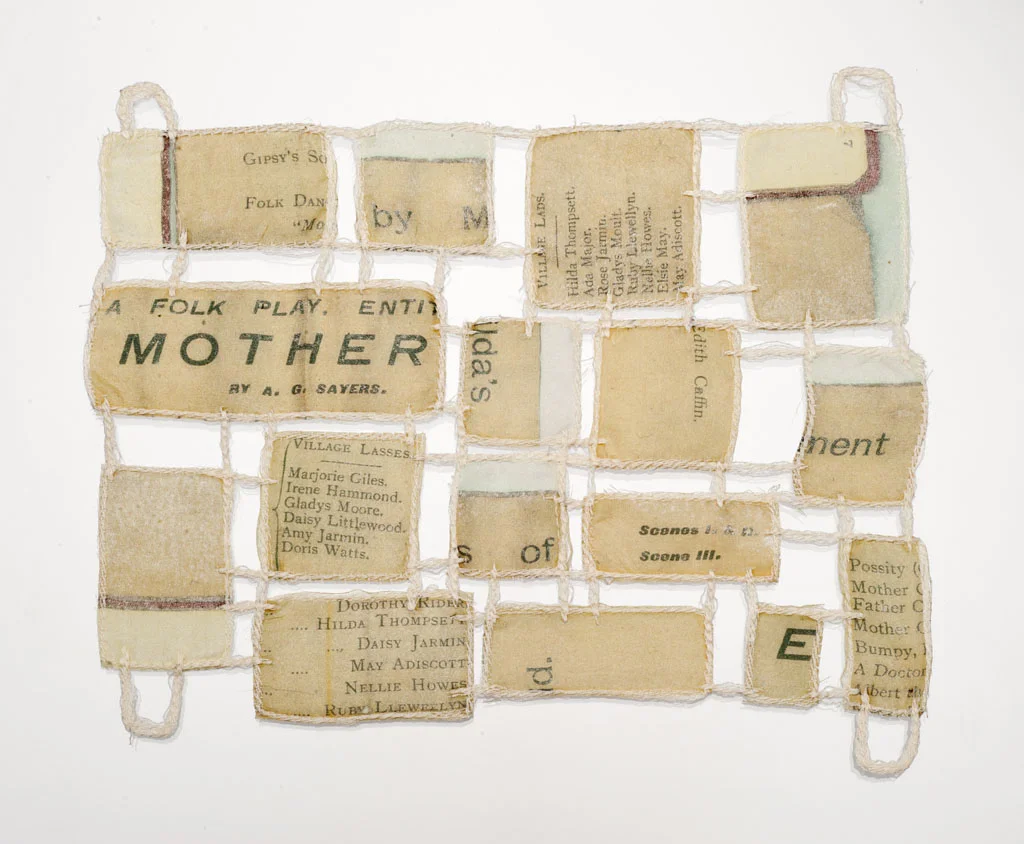 GIPSY'S SO
FOLK DAN
"Mo
by M
VILLAGE LADS.
Hilda Thompsett.
Ada Major.
Rose Jarmin.
Gladys Moult.
Ruby Llewellyn.
Nellie Howes.
Elsie May.
May Adiscott.
A FOLK PLAY. ENTI
MOTHER
BY A. G. SAYERS.
uda's
Edith Caffin.
ment
VILLAGE LASSES
Marjorie Giles.
Irene Hammond.
Gladys Moore.
Daisy Littlewood.
Amy Jarmin.
Doris Watts.
s of
Scenes I. &
Scene III.
Possity (
Mother
Father C
Mother
Bumpy,
A Doctor
Albert
DOROTHY RIDER
.... HILDA THOMPSETT
.... DAISY JARMIN
.... MAY ADISCOTT
NELLIE HOWES
.... RUBY LLEWELLYN
d.
E